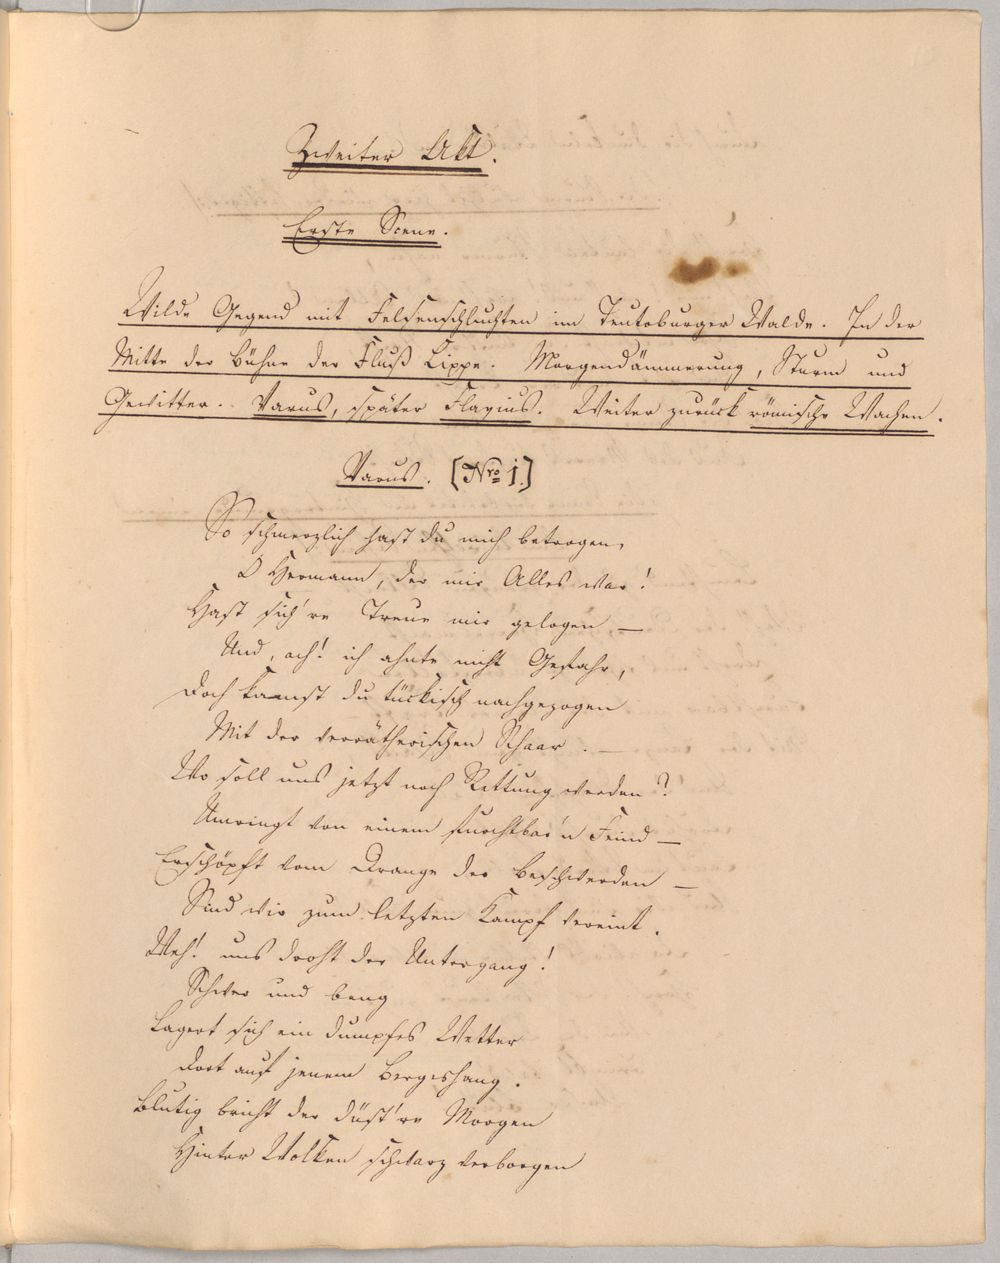 Zweiter Akt.
Erste Scene.
Wilde Gegend mit Felsenschluchten im Teutoburger Walde. In der
Mitte der Bühne der Fluß Lippe. Morgendämmerung, Sturm und
Gewitter. Varus, später Flavius. Weiter zurück römische Wachen.
Varus. [Nro 1.]
So schmerzlich hast du mich betrogen,
O Hermann, der mir Alles war!
Hast sich're Treue mir gelogen —
Und, ach! ich ahnte nicht Gefahr,
Doch kamst du tückisch nachgezogen
Mit der verrätherischen Schaar. —
Wo soll uns jetzt noch Rettung werden?
Umringt von einem furchtbar'n Feind —
Erschöpft vom Drange der Beschwerden —
Sind wir zum letzten Kampf vereint.
Weh! uns droht der Untergang!
Schwer und bang
Lagert sich ein dumpfes Wetter
Dort auf jenem Bergeshang.
Blutig bricht der düst're Morgen
Hinter Wolken schwarz verborgen